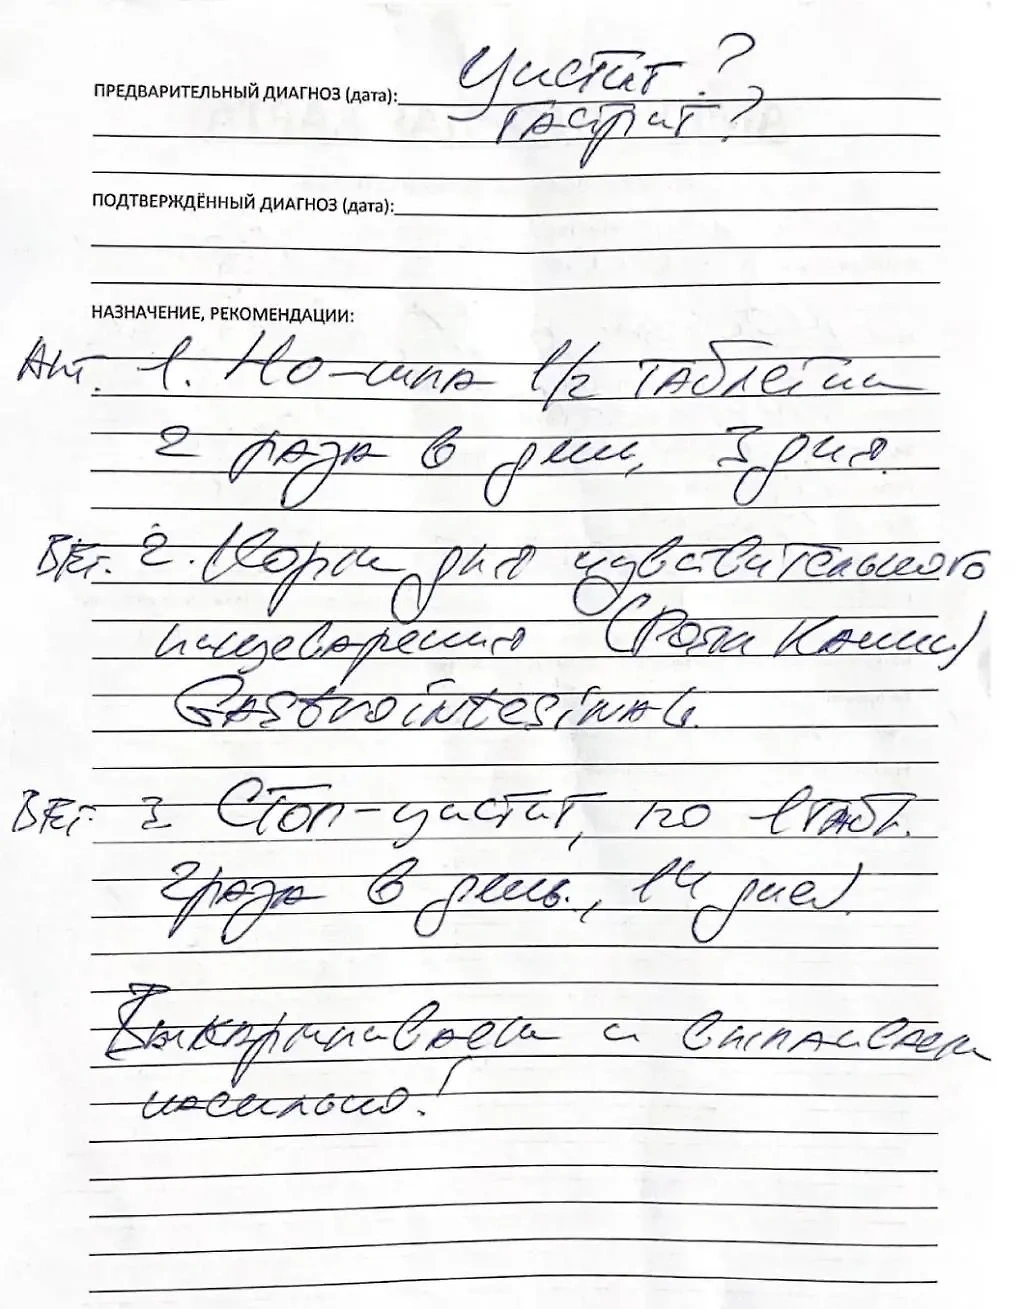 ПРЕДВАРИТЕЛЬНЫЙ ДИАГНОЗ (дата): Цистит?
Гастрит?
ПОДТВЕРЖДЁННЫЙ ДИАГНОЗ (дата):
НАЗНАЧЕНИЕ, РЕКОМЕНДАЦИИ:
Апт. 1. Но-шпа 1/2 таблетки
2 раза в день, 3 дня.
Вет. 2. Корм для чувствительного
пищеварения (Роял Канин)
Gastrointestinal.
Вет. 3 Стоп-цистит, по 1 табл.
2 раза в день., 14 дней.
Выкармливаем и выпаиваем
насильно!